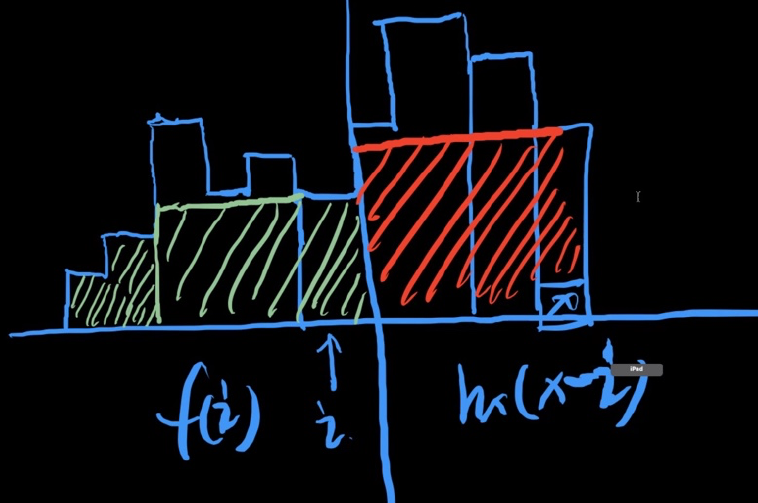 f(i)
i
hx(x-i)
iPad